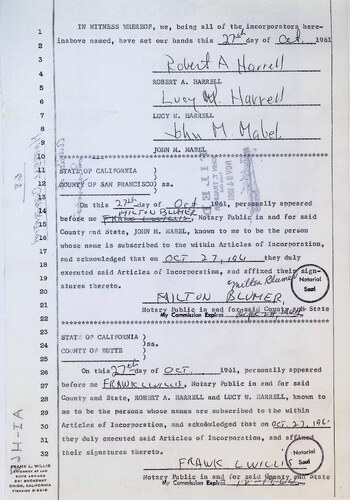 IN WITNESS WHEREOF, we, being all of the incorporators here-
1 inabove named, have set our hands this 27th day of Oct. 1961
2
3 Robert A Harrell
4 ROBERT A. HARRELL
5 Lucy W. Harrell
6
7 LUCY W. HARRELL
8 John M. Mabel
9 JOHN M. MABEL
10 ********************
11 STATE OF CALIFORNIA )
12 COUNTY OF SAN FRANCISCO) ss.
FILED
13 On this 27th day of Oct 1961, personally appeared
MILTON BLUMER
14 before me FRANK L WILLIS, Notary Public in and for said
15 County and State, JOHN M. MABEL, known to me to be the person
16 whose name is subscribed to the within Articles of Incorporation,
17 and acknowledged that on OCT 27, 1961 they duly
18 executed said Articles of Incorporation, and affixed their sign-
19 atures thereto. Milton Blumer
20 MILTON BLUMER,
21 Notary Public in and for said County and State
22 My Commission Expires
Notarial Seal
23 STATE OF CALIFORNIA )
24 ) ss.
COUNTY OF BUTTE )
25
26 On this 27th day of Oct 1961, personally appeared
27 before me FRANK L WILLIS, Notary Public in and for said
28 County and State, ROBERT A. HARRELL and LUCY W. HARRELL, known
to me to be the persons whose names are subscribed to the within
29
30 Articles of Incorporation, and acknowledged that on Oct 27, 1961
31 they duly executed said Articles of Incorporation, and affixed
32 their signatures thereto.
FRANK L WILLIS
Notary Public in and for said County and State
My Commission Expires
Notarial Seal
JH-IA
FRANK L. WILLIS
ATTORNEY AT LAW